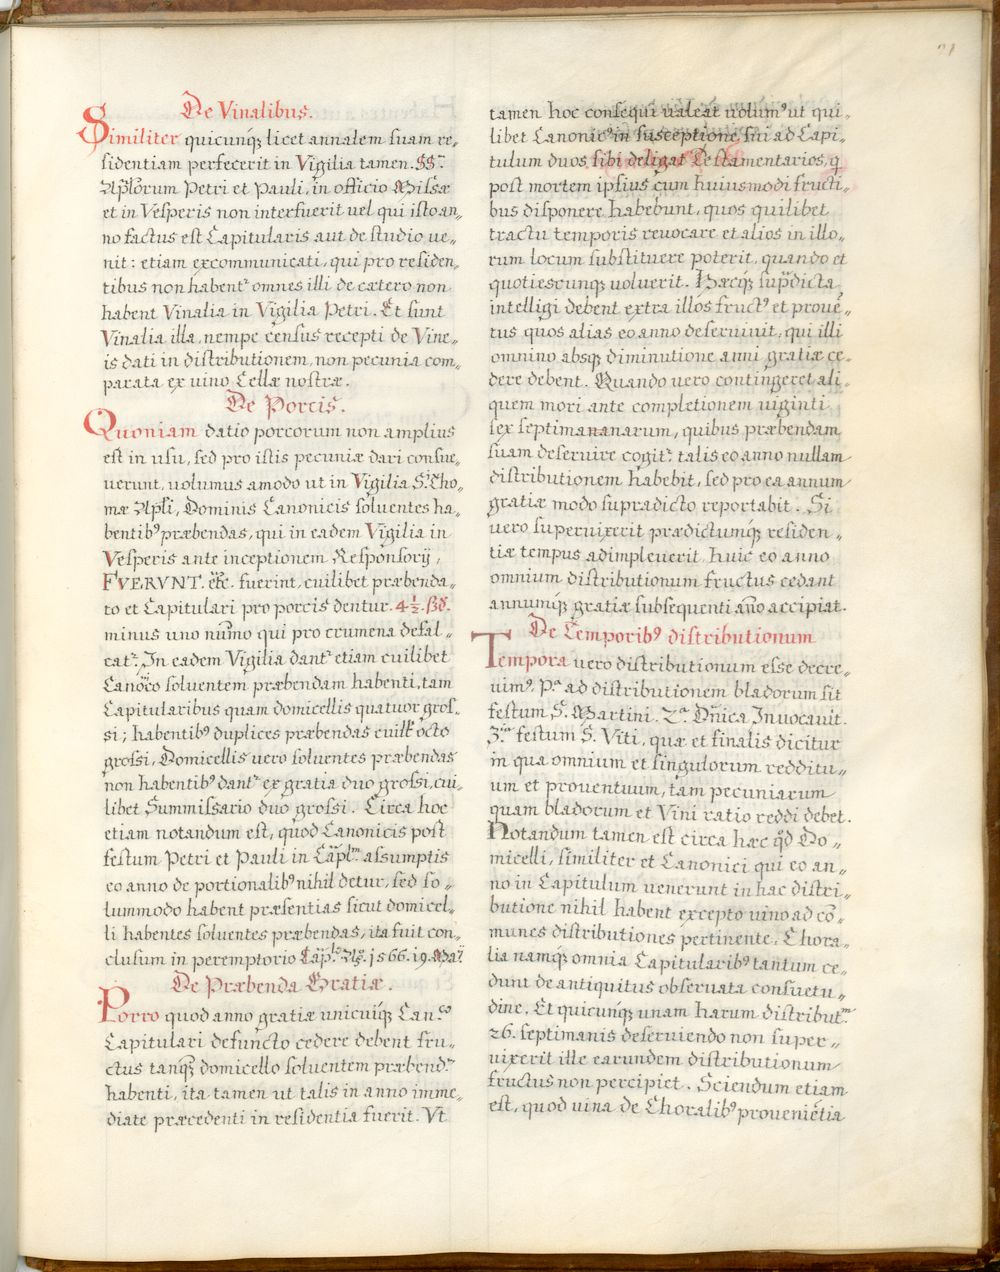 21
De Vinalibus.
Similiter quicunq; licet annalem suam re„
sidentiam perfecerit in Vigilia tamen. SS.
Aplorum Petri et Pauli, in officio Missæ
et in Vesperis non interfuerit uel qui isto an„
no factus est Capitularis aut de studio ue„
nit: etiam excommunicati, qui pro residen„
tibus non habent' omnes illi de cætero non
habent Vinalia in Vigilia Petri. Et sunt
Vinalia illa, nempe census recepti de Vine„
is dati in distributionem, non pecunia com„
parata ex uino Cellæ nostræ.
De Porcis.
Quoniam datio porcorum non amplius
est in usu, sed pro istis pecuniæ dari consue„
uerunt, uolumus amodo ut in Vigilia S. Tho„
mæ Apli, Dominis Canonicis soluentes ha„
bentib9 præbendas, qui in eadem Vigilia in
Vesperis ante inceptionem Responsorij,
FVERVNT. etc. fuerint, cuilibet præbenda„
to et Capitulari pro porcis dentur. 4½. ßd.
minus uno numo qui pro crumena defal„
cat'. In eadem Vigilia dant' etiam cuilibet
Canoco soluentem præbendam habenti, tam
Capitularibus quam domicellis quatuor gros„
si; habentib9 duplices præbendas cuilt octo
grossi, Domicellis uero soluentes præbendas
non habentib9 dant' ex gratia duo grossi, cui„
libet Summissario duo grossi. Circa hoc
etiam notandum est, quod Canonicis post
festum Petri et Pauli in Caplm assumptis
eo anno de portionalib9 nihil detur, sed so„
lummodo habent præsentias sicut domicel„
li habentes soluentes præbendas, ita fuit con„
clusum in peremptorio Caplo Ao. 1566. 19. Maij
De Præbenda Gratiæ.
Porro quod anno gratiæ unicuiq; Canco
Capitulari defuncto cedere debent fru„
ctus tanq; domicello soluentem præbendm
habenti, ita tamen ut talis in anno imme„
diate præcedenti in residentia fuerit. Vt
tamen hoc consequi ualeat uolum9 ut qui„
libet Canonic9 in susceptione sui ad Capi„
tulum duos sibi deligat Testamentarios, q
post mortem ipsius cum huiusmodi fructi„
bus disponere habebunt, quos quilibet
tractu temporis reuocare et alios in illo„
rum locum substituere poterit, quando et
quotiescunq; uoluerit. Hæcq; supdicta
intelligi debent extra illos fruct9 et prouē„
tus quos alias eo anno deseruiuit, qui illi
omnino absq; diminutione anni gratiæ ce„
dere debent. Quando uero contingeret ali„
quem mori ante completionem uiginti
sex septimananarum, quibus præbendam
suam deseruire cogit' talis eo anno nullam
distributionem habebit, sed pro ea annum
gratiæ modo supradicto reportabit. Si
uero superuixerit prædictumq; residen„
tiæ tempus adimpleuerit huic eo anno
omnium distributionum fructus cedant
annumq; gratiæ subsequenti año accipiat.
De Temporib9 distributionum
Tempora uero distributionum esse decre„
uim9. Pa ad distributionem bladorum sit
festum S. Martini. 2a. Dñica Inuocauit.
3a festum S. Viti, quæ et finalis dicitur
in qua omnium et singulorum redditu„
um et prouentuum, tam pecuniarum
quam bladorum et Vini ratio reddi debet.
Notandum tamen est circa hæc qd Do„
micelli, similiter et Canonici qui eo an„
no in Capitulum uenerunt in hac distri„
butione nihil habent excepto uino ad cō„
munes distributiones pertinente. Chora„
lia namq; omnia Capitularib9 tantum ce„
dunt de antiquitus obseruata consuetu„
dine. Et quicunq; unam harum distribut.m
26. septimanis deseruiendo non super„
uixerit ille earundem distributionum
fructus non percipiet. Sciendum etiam
est, quod uina de Choralib9 proueniētia